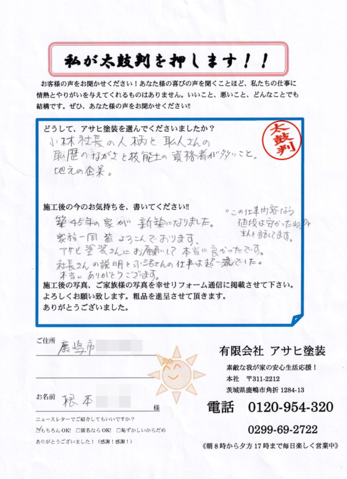 私が太鼓判を押します！！
お客様の声をお聞かせください！あなた様の喜びの声を聞くことほど、私たちの仕事に
情熱とやりがいを与えてくれるものはありません。いいこと、悪いこと、どんなことでも
結構です。ぜひ、あなた様の声をお聞かせください!!
どうして、アサヒ塗装を選んでくださいましたか？
太鼓判
小林社長の人柄と職人さんの
職歴のながさと技能士の資格者が多いこと。
地元の企業。
施工後の今のお気持ちを、書いてください!!
築45年の家が新築になりました。
家族一同皆よろこんでおります。
アサヒ塗装さんにお願いして本当に良かったです。
社長さんの説明と職人さんの仕事は超一流でした。
本当にありがとうございます。
"この仕事内容なら
値段は安かった
施工後の写真、ご家族様の写真を幸せリフォーム通信に掲載させて下さい。
よろしくお願い致します。粗品を進呈させて頂きます。
ありがとうございました。
ご住所
鹿嶋市
お名前
根本
様
ニュースレターでご紹介してもいいですか？
☑もちろんOK! □匿名ならOK! □恥ずかしいからだめ
ありがとうございました！（感謝！感謝！）
有限会社 アサヒ塗装
素敵な我が家の安心生活応援！
本社 〒311-2212
茨城県鹿嶋市角折 1284-13
電話 0120-954-320
0299-69-2722
《朝8時から夕方17時まで毎日楽しく営業中》